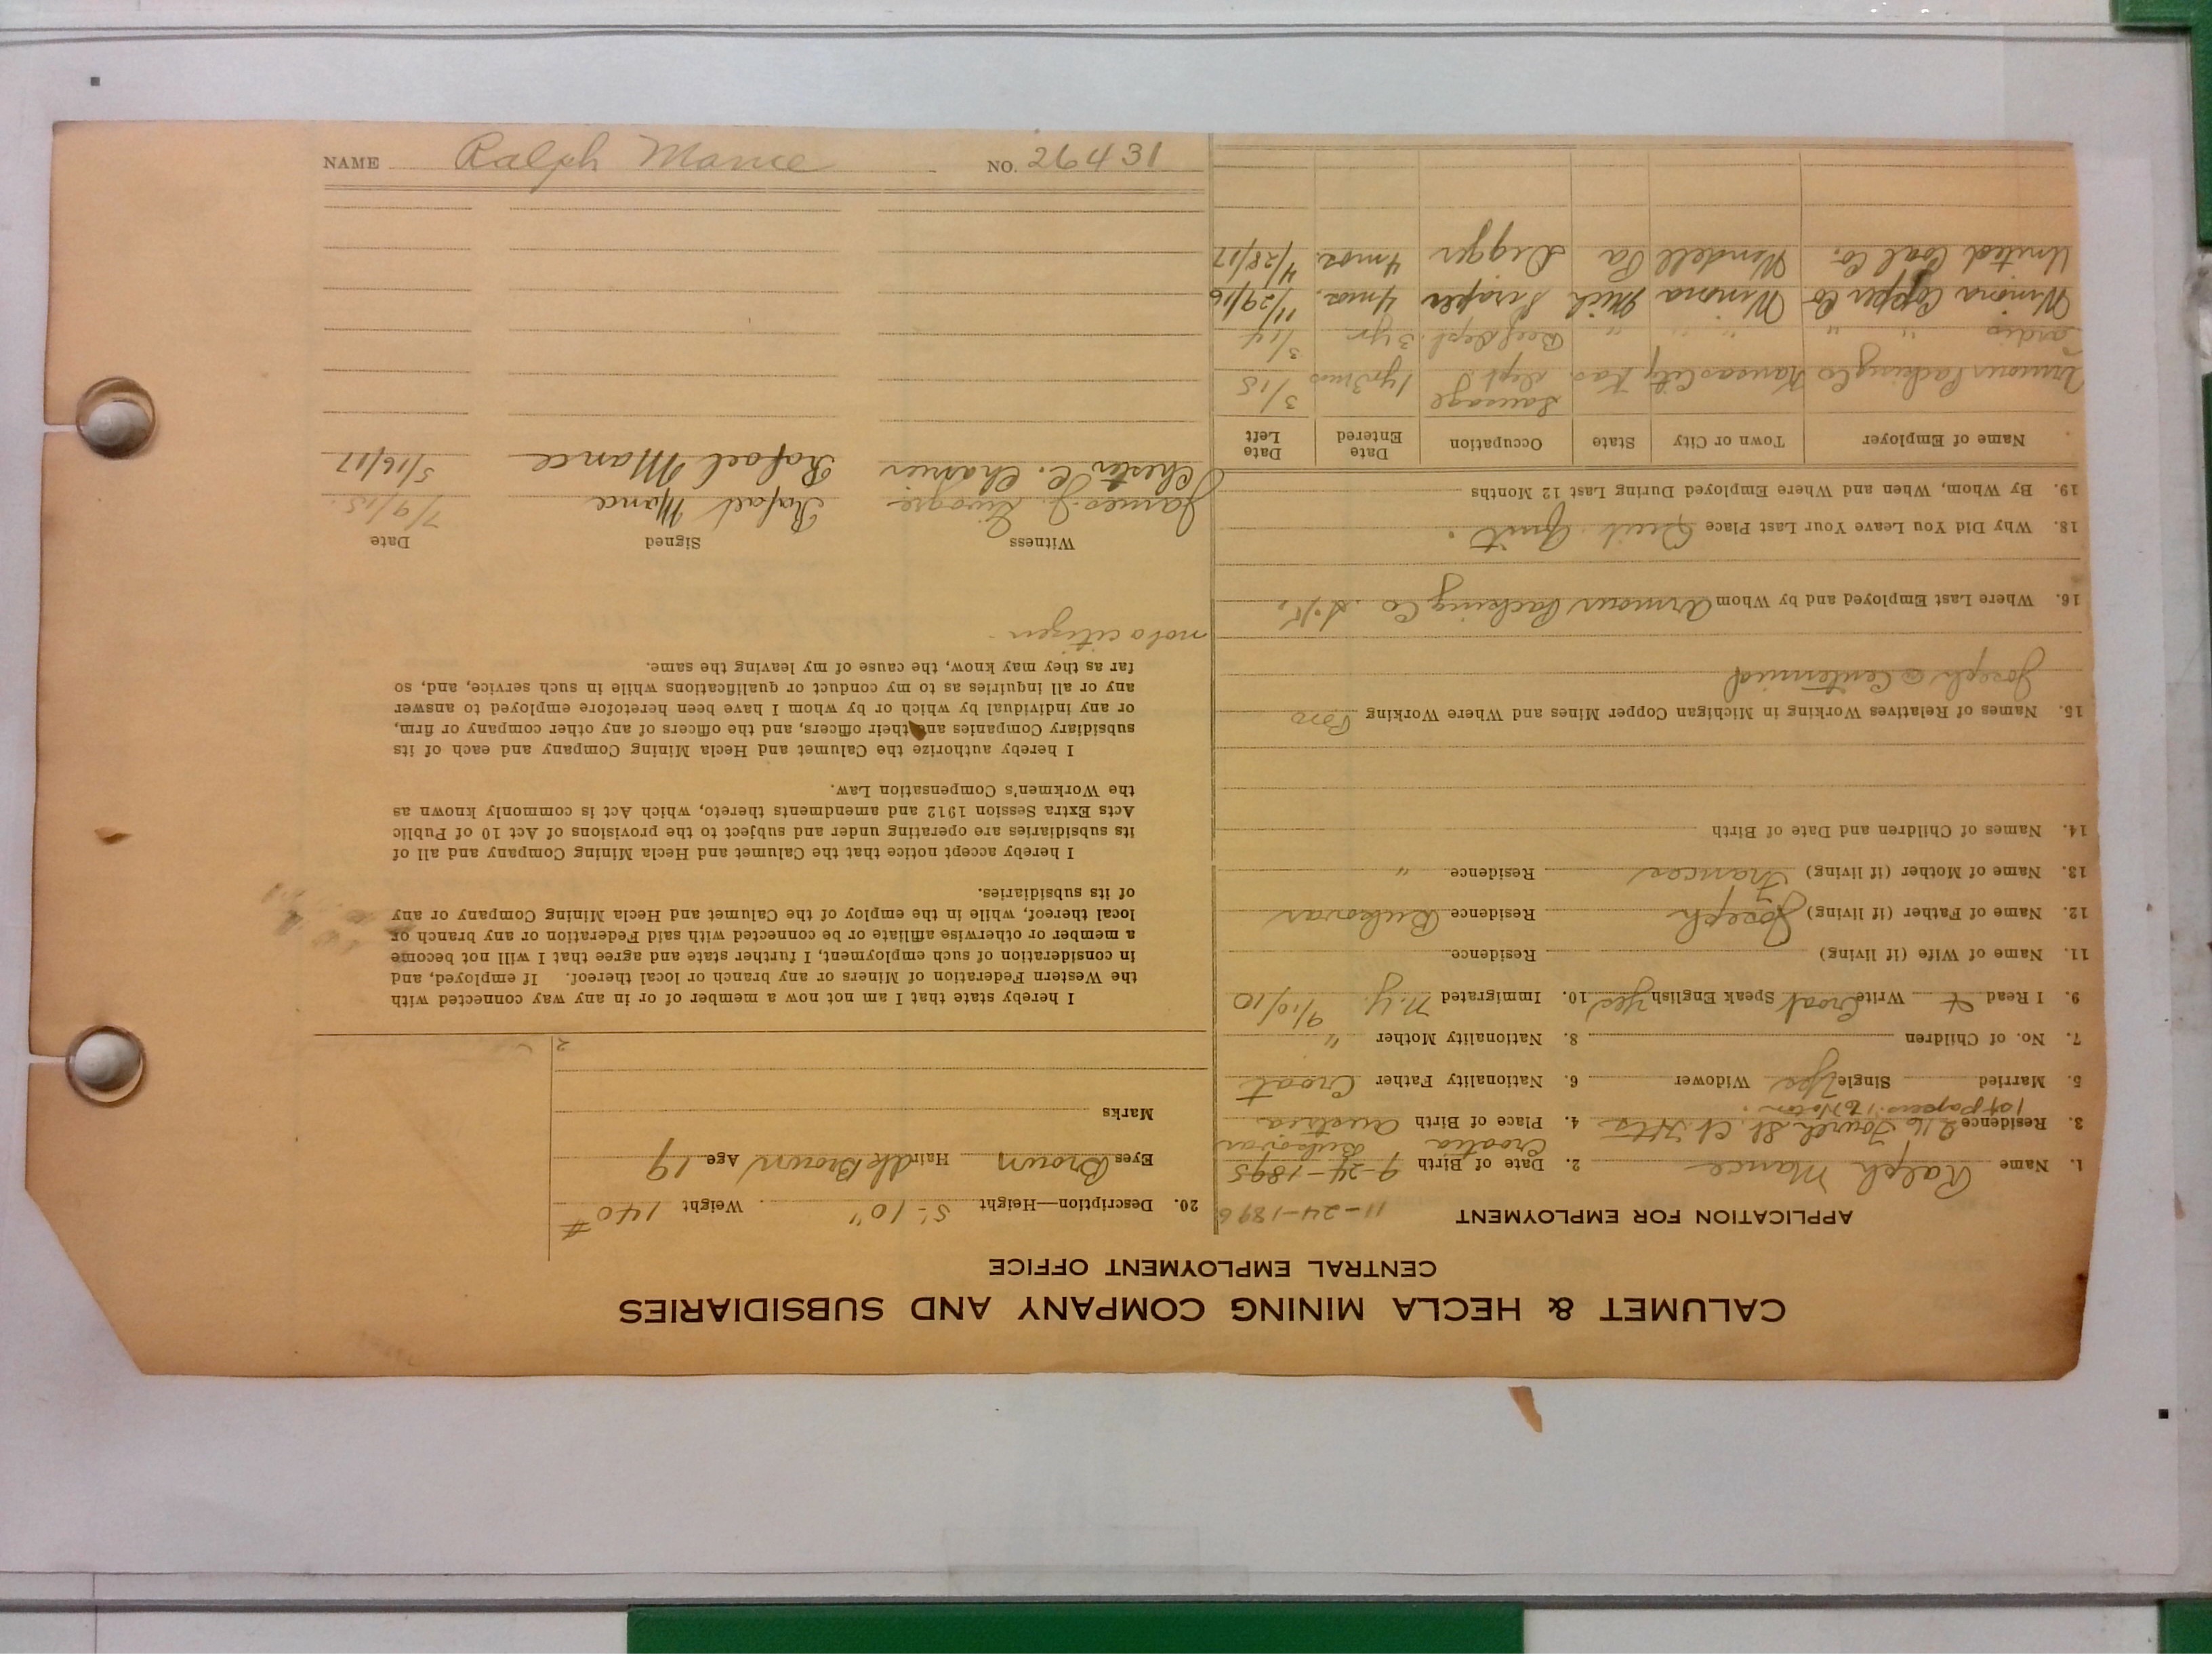 CALUMET & HECLA MINING COMPANY AND SUBSIDIARIES
CENTRAL EMPLOYMENT OFFICE
APPLICATION FOR EMPLOYMENT 11-24-1896
1. Name Ralph Mance 2. Date of Birth 9-24-1895
Croatia Bukovar
3. Residence 216 Fourth St. Ct. Hts 4. Place of Birth Austria
1st papers
5. Married Single Yes Widower 6. Nationality Father Croat
7. No. of Children 8. Nationality Mother "
9. I Read & Write Croat Speak English Yes 10. Immigrated N.Y. 9/10/10
11. Name of Wife (if living) Residence
12. Name of Father (if living) Joseph Residence Bukovar
13. Name of Mother (if living) Frances Residence "
14. Names of Children and Date of Birth
15. Names of Relatives Working in Michigan Copper Mines and Where Working
Joseph @ Centennial
16. Where Last Employed and by Whom Armour Packing Co.
18. Why Did You Leave Your Last Place Quit
19. By Whom, When and Where Employed During Last 12 Months
Name of Employer Town or City State Occupation Date Entered Date Left
Armour Packing Co Kansas City Kas. Sausage Dept. 1 yr 3 mos 3/15
" " " " Beef Dept. 3 yr 3/14
Winona Copper Co Winona Mich Scraper 4 mos. 11/29/16
United Coal Co. Wendell Pa Digger 4 mos. 4/28/17
20. Description—Height 5'-10" Weight 140 #
Eyes Brown Hair dk Brown Age 19
Marks
2
I hereby state that I am not now a member of or in any way connected with
the Western Federation of Miners or any branch or local thereof. If employed, and
in consideration of such employment, I further state and agree that I will not become
a member or otherwise affiliate or be connected with said Federation or any branch or
local thereof, while in the employ of the Calumet and Hecla Mining Company or any
of its subsidiaries.
I hereby accept notice that the Calumet and Hecla Mining Company and all of
its subsidiaries are operating under and subject to the provisions of Act 10 of Public
Acts Extra Session 1912 and amendments thereto, which Act is commonly known as
the Workmen's Compensation Law.
I hereby authorize the Calumet and Hecla Mining Company and each of its
subsidiary Companies and their officers, and the officers of any other company or firm,
or any individual by which or by whom I have been heretofore employed to answer
any or all inquiries as to my conduct or qualifications while in such service, and, so
far as they may know, the cause of my leaving the same.
not a citizen
Witness Signed Date
James J. Rafael Mance 7/9/15.
Chester C. Rafael Mance 5/16/17
NAME Ralph Mance NO. 26431